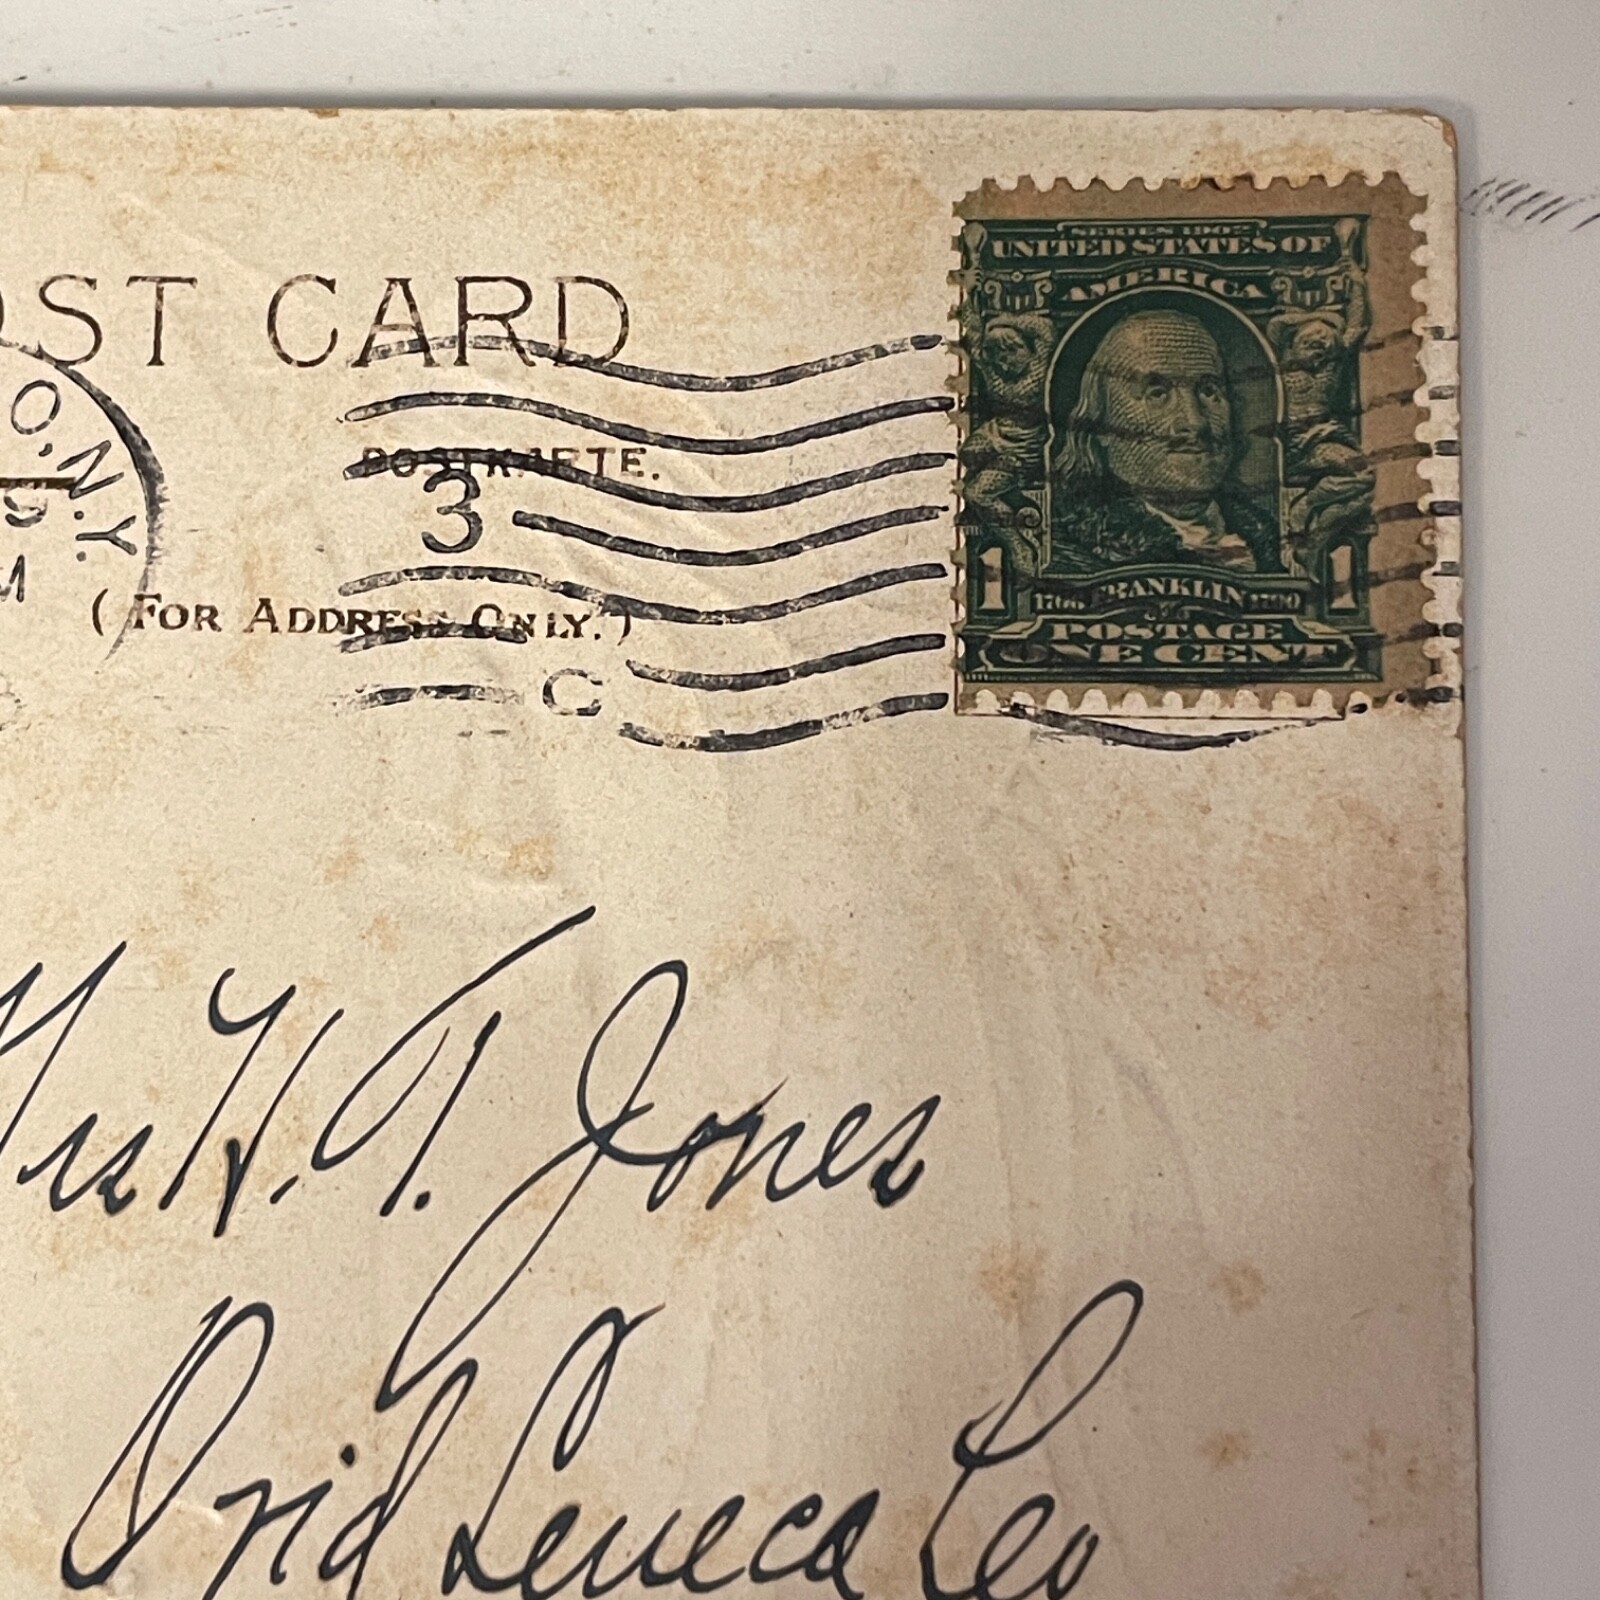 OST CARD
O, N.Y.
POSTKARTE.
3
M
(FOR ADDRESS ONLY.)
C
SERIES 1902
UNITED STATES OF
AMERICA
1 1706 FRANKLIN 1790 1
POSTAGE
ONE CENT
Mrs H. T. Jones
Ovid Seneca Co